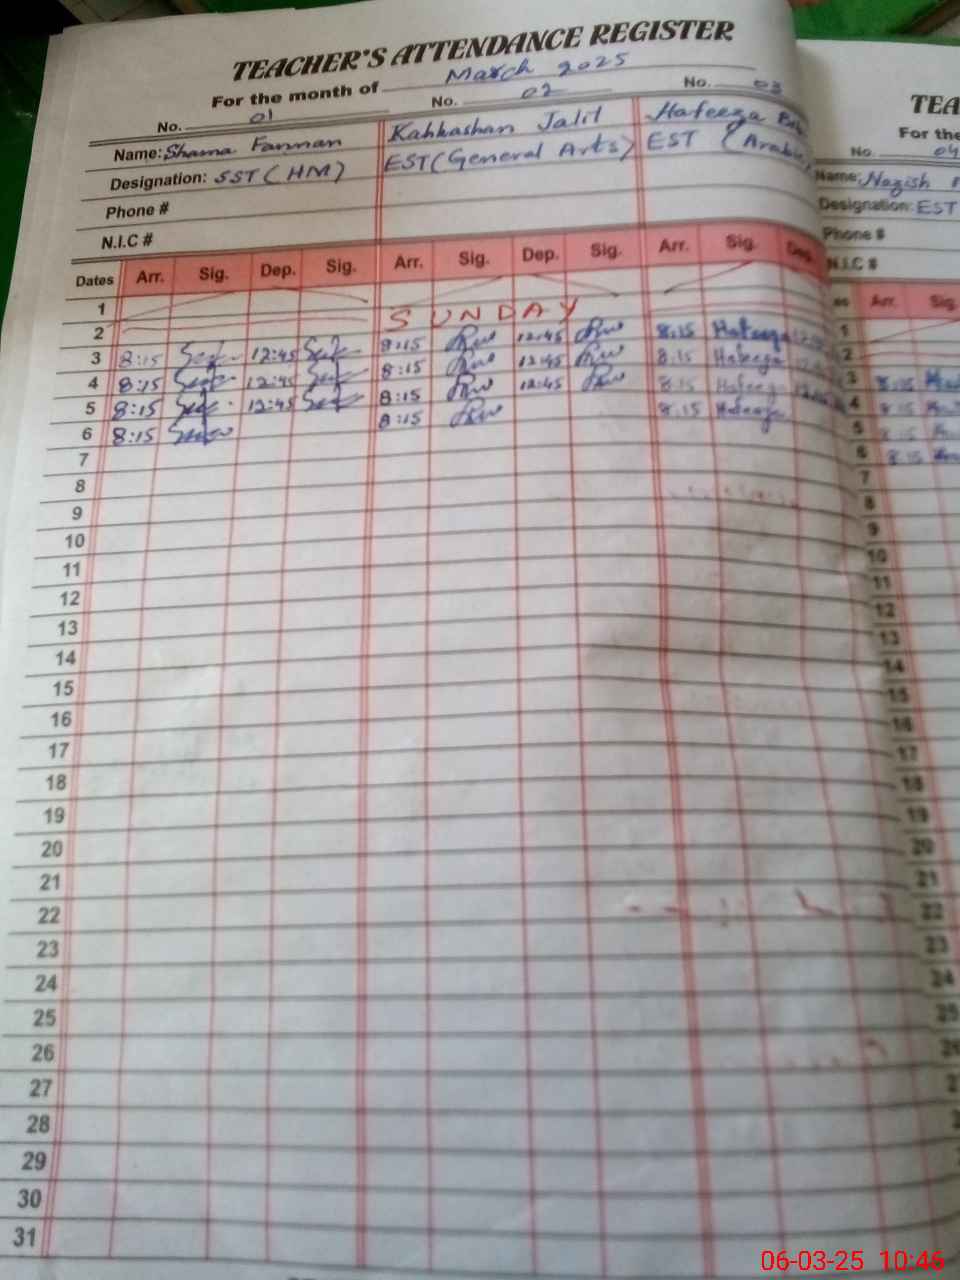 TEACHER'S ATTENDANCE REGISTER
For the month of March 2025
No. 01 No. 02 No. 03
Name: Shama Farman Kahkashan Jalil Hafeeza
Designation: SST (HM) EST (General Arts) EST (Arabic)
Phone #
N.I.C #
Dates Arr. Sig. Dep. Sig. Arr. Sig. Dep. Sig. Arr. Sig. Dep.
1
2 SUNDAY
3 8:15 12:45 8:15 12:45 8:15 Hafeeza
4 8:15 12:45 8:15 12:45 8:15 Hafeeza
5 8:15 12:45 8:15 12:45 8:15 Hafeeza
6 8:15 8:15 8:15 Hafeeza
7
8
9
10
11
12
13
14
15
16
17
18
19
20
21
22
23
24
25
26
27
28
29
30
31
TEA
For the
No. 04
Name: Nazish
Designation: EST
Phone #
N.I.C #
Arr. Sig.
1
2
3 8:15
4 8:15
5 8:15
6 8:15
7
8
9
10
11
12
13
14
15
16
17
18
19
20
21
22
23
24
25
06-03-25 10:46